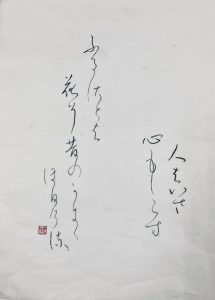 人はいさ
心もしらす
ふるさとは
花そ昔のかに
ほひける